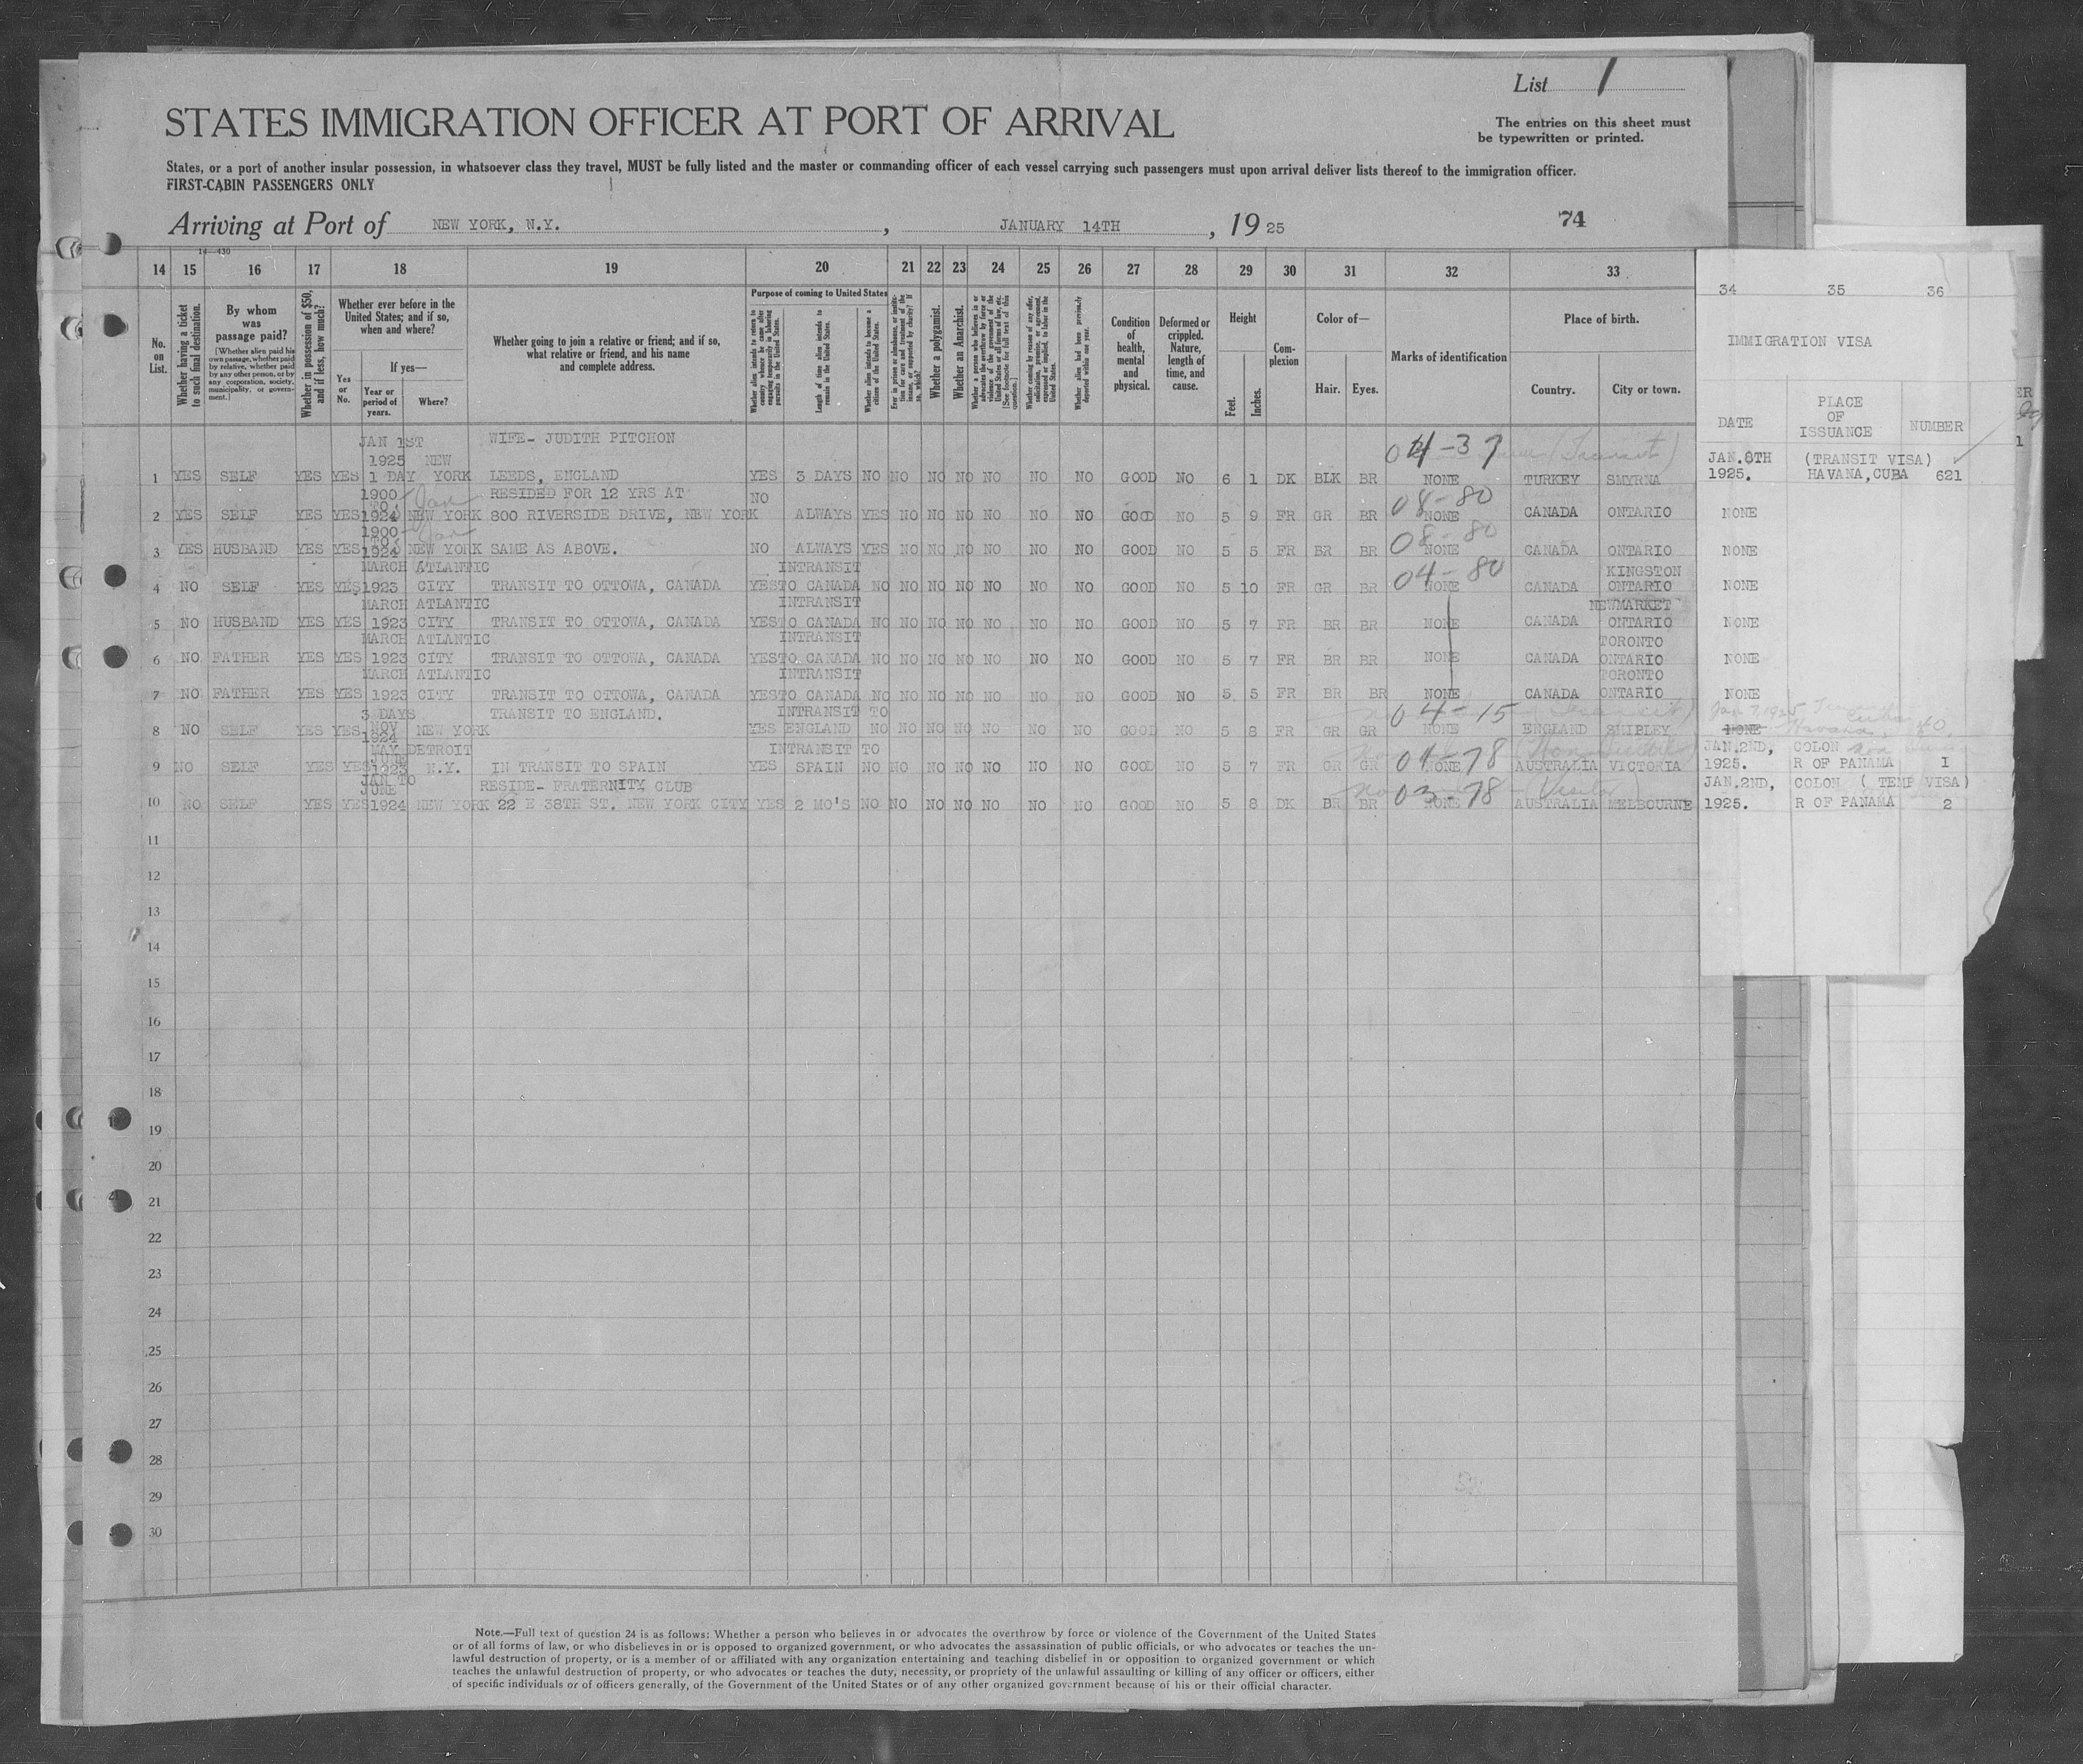 List 1
STATES IMMIGRATION OFFICER AT PORT OF ARRIVAL
The entries on this sheet must
be typewritten or printed.
States, or a port of another insular possession, in whatsoever class they travel, MUST be fully listed and the master or commanding officer of each vessel carrying such passengers must upon arrival deliver lists thereof to the immigration officer.
FIRST-CABIN PASSENGERS ONLY
Arriving at Port of NEW YORK, N.Y. , JANUARY 14TH , 19 25 74
14—430
14 15 16 17 18 19 20 21 22 23 24 25 26 27 28 29 30 31 32 33 34 35 36
No. on List.
Whether having a ticket to such final destination.
By whom was passage paid?
[Whether alien paid his own passage, whether paid by relative, whether paid by any other person, or by any corporation, society, municipality, or government.]
Whether in possession of $50, and if less, how much?
Whether ever before in the United States; and if so, when and where?
Yes or No.
If yes—
Year or period of years.
Where?
Whether going to join a relative or friend; and if so, what relative or friend, and his name and complete address.
Purpose of coming to United States
Whether alien intends to return to country whence he came after engaging temporarily in laboring pursuits in the United States.
Length of time alien intends to remain in the United States.
Whether alien intends to become a citizen of the United States.
Ever in prison or almshouse, or institution for care and treatment of the insane, or supported by charity? If so, which?
Whether a polygamist.
Whether an Anarchist.
Whether a person who believes in or advocates the overthrow by force or violence of the Government of the United States or all forms of law, etc. [See footnote for full text of this question.]
Whether coming by reason of any offer, solicitation, promise, or agreement, expressed or implied, to labor in the United States.
Whether alien had been previously deported within one year.
Condition of health, mental and physical.
Deformed or crippled. Nature, length of time, and cause.
Height
Feet.
Inches.
Complexion
Color of—
Hair.
Eyes.
Marks of identification
Place of birth.
Country.
City or town.
IMMIGRATION VISA
DATE
PLACE OF ISSUANCE
NUMBER
JAN 1ST WIFE- JUDITH PITCHON
1925 NEW 04-37 (Transit) JAN.8TH (TRANSIT VISA)
1 YES SELF YES YES 1 DAY YORK LEEDS, ENGLAND YES 3 DAYS NO NO NO NO NO NO NO GOOD NO 6 1 DK BLK BR NONE TURKEY SMYRNA 1925. HAVANA,CUBA 621
1900 RESIDED FOR 12 YRS AT NO 08-80
TO
2 YES SELF YES YES 1924 NEW YORK 800 RIVERSIDE DRIVE, NEW YORK ALWAYS YES NO NO NO NO NO NO GOOD NO 5 9 FR GR BR NONE CANADA ONTARIO NONE
1900 08-80
TO
3 YES HUSBAND YES YES 1924 NEW YORK SAME AS ABOVE. NO ALWAYS YES NO NO NO NO NO NO GOOD NO 5 5 FR BR BR NONE CANADA ONTARIO NONE
MARCH ATLANTIC INTRANSIT 04-80 KINGSTON
4 NO SELF YES YES 1923 CITY TRANSIT TO OTTOWA, CANADA YES TO CANADA NO NO NO NO NO NO NO GOOD NO 5 10 FR GR BR NONE CANADA ONTARIO NONE
MARCH ATLANTIC INTRANSIT NEWMARKET
5 NO HUSBAND YES YES 1923 CITY TRANSIT TO OTTOWA, CANADA YES TO CANADA NO NO NO NO NO NO NO GOOD NO 5 7 FR BR BR NONE CANADA ONTARIO NONE
MARCH ATLANTIC INTRANSIT TORONTO
6 NO FATHER YES YES 1923 CITY TRANSIT TO OTTOWA, CANADA YES TO CANADA NO NO NO NO NO NO NO GOOD NO 5 7 FR BR BR NONE CANADA ONTARIO NONE
MARCH ATLANTIC INTRANSIT TORONTO
7 NO FATHER YES YES 1923 CITY TRANSIT TO OTTOWA, CANADA YES TO CANADA NO NO NO NO NO NO NO GOOD NO 5 5 FR BR BR NONE CANADA ONTARIO NONE
3 DAYS TRANSIT TO ENGLAND. INTRANSIT TO 04-15 Jan 7 1925
NOV Havana, Cuba 40
8 NO SELF YES YES 1924 NEW YORK YES ENGLAND NO NO NO NO NO NO NO GOOD NO 5 8 FR GR GR NONE ENGLAND SHIPLEY NONE
MAY DETROIT INTRANSIT TO 04-78 JAN.2ND, COLON
JUNE
9 NO SELF YES YES 1923 N.Y. IN TRANSIT TO SPAIN YES SPAIN NO NO NO NO NO NO NO GOOD NO 5 7 FR GR GR NONE AUSTRALIA VICTORIA 1925. R OF PANAMA 1
JAN TO RESIDE- FRATERNITY CLUB 03-78 (Visitor) JAN.2ND, COLON ( TEMP VISA)
JUNE
10 NO SELF YES YES 1924 NEW YORK 22 E 38TH ST. NEW YORK CITY YES 2 MO'S NO NO NO NO NO NO NO GOOD NO 5 8 DK BR BR NONE AUSTRALIA MELBOURNE 1925. R OF PANAMA 2
11
12
13
14
15
16
17
18
19
20
21
22
23
24
25
26
27
28
29
30
Note.—Full text of question 24 is as follows: Whether a person who believes in or advocates the overthrow by force or violence of the Government of the United States
or of all forms of law, or who disbelieves in or is opposed to organized government, or who advocates the assassination of public officials, or who advocates or teaches the un-
lawful destruction of property, or is a member of or affiliated with any organization entertaining and teaching disbelief in or opposition to organized government or which
teaches the unlawful destruction of property, or who advocates or teaches the duty, necessity, or propriety of the unlawful assaulting or killing of any officer or officers, either
of specific individuals or of officers generally, of the Government of the United States or of any other organized government because of his or their official character.